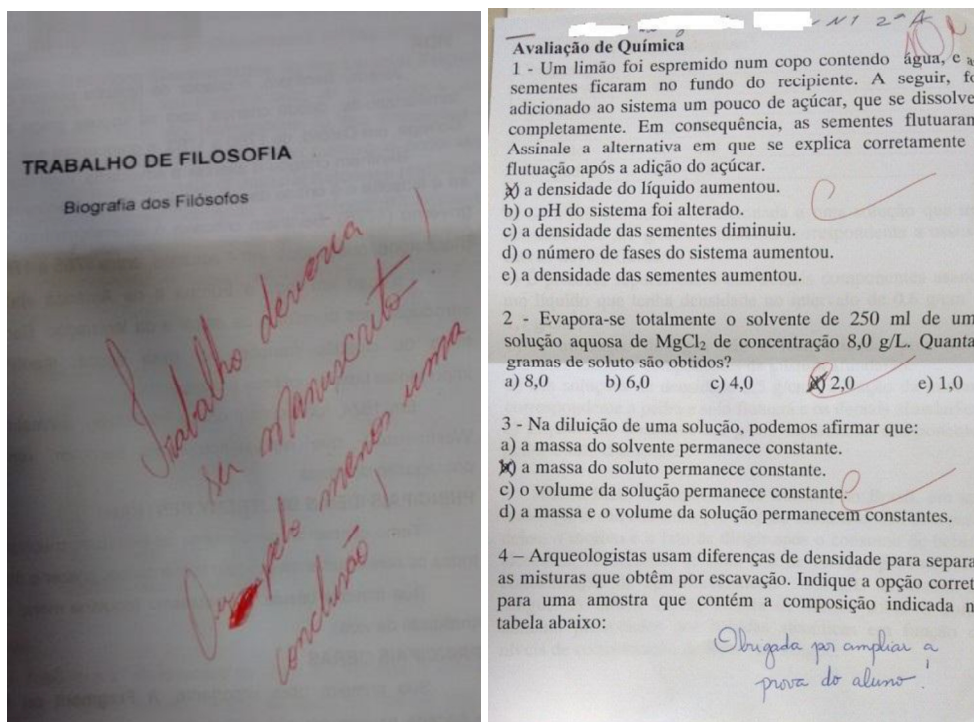 TRABALHO DE FILOSOFIA
Biografia dos Filósofos
Trabalho deveria
ser manuscrito!
Ou pelo menos uma
conclusão!
Nº 1 2ª A
Avaliação de Química
1 - Um limão foi espremido num copo contendo água, e as
sementes ficaram no fundo do recipiente. A seguir, fo
adicionado ao sistema um pouco de açúcar, que se dissolve
completamente. Em consequência, as sementes flutuaram
Assinale a alternativa em que se explica corretamente
flutuação após a adição do açúcar.
a) a densidade do líquido aumentou.
b) o pH do sistema foi alterado.
c) a densidade das sementes diminuiu.
d) o número de fases do sistema aumentou.
e) a densidade das sementes aumentou.
C
2 - Evapora-se totalmente o solvente de 250 ml de um
solução aquosa de MgCl₂ de concentração 8,0 g/L. Quanta
gramas de soluto são obtidos?
a) 8,0 b) 6,0 c) 4,0 d) 2,0 e) 1,0
C
3 - Na diluição de uma solução, podemos afirmar que:
a) a massa do solvente permanece constante.
b) a massa do soluto permanece constante.
c) o volume da solução permanece constante.
d) a massa e o volume da solução permanecem constantes.
C
4 – Arqueologistas usam diferenças de densidade para separa
as misturas que obtêm por escavação. Indique a opção corret
para uma amostra que contém a composição indicada n
tabela abaixo:
Obrigada por ampliar a
prova do aluno!